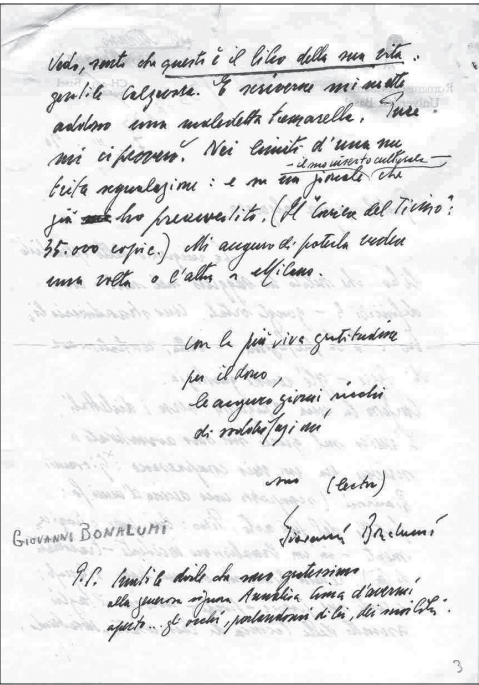 Vedo, sento che questo è il libro della sua vita,
gentile Calgrossa. E scriverne mi mette
addosso una maledetta tremarella. Pure
mi ci proverò. Nei limiti d'una nu
trita segnalazione: e su un giornale che
- il suo inserto culturale -
già ho preavvertito. (Il "Corriere del Ticino":
35.000 copie.) Mi auguro di poterla vedere
una volta o l'altra a Milano.
con la più viva gratitudine
per il dono,
le auguro giorni ricchi
di soddisfazioni
suo (lector)
Giovanni Bonalumi
GIOVANNI BONALUMI
P.S. Inutile dirle che sono gratissimo
alla generosa signora Annalisa Cima d'avermi
aperto... gli occhi, parlandomi di lei, dei suoi libri.
3